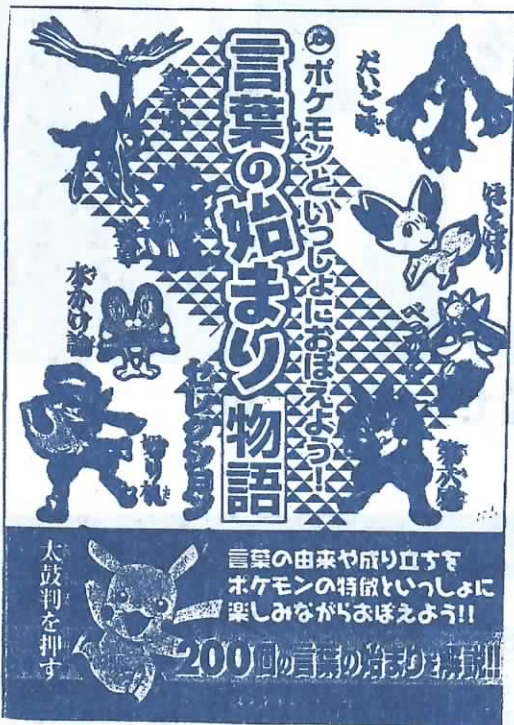 ポケモンといっしょにおぼえよう!
言葉の始まり物語
だいご味
ほくほり
水かけ論
切り札
第六感
太鼓判を押す
言葉の由来や成り立ちを
ポケモンの特徴といっしょに
楽しみながらおぼえよう!!
200個の言葉の始まりを解説!!